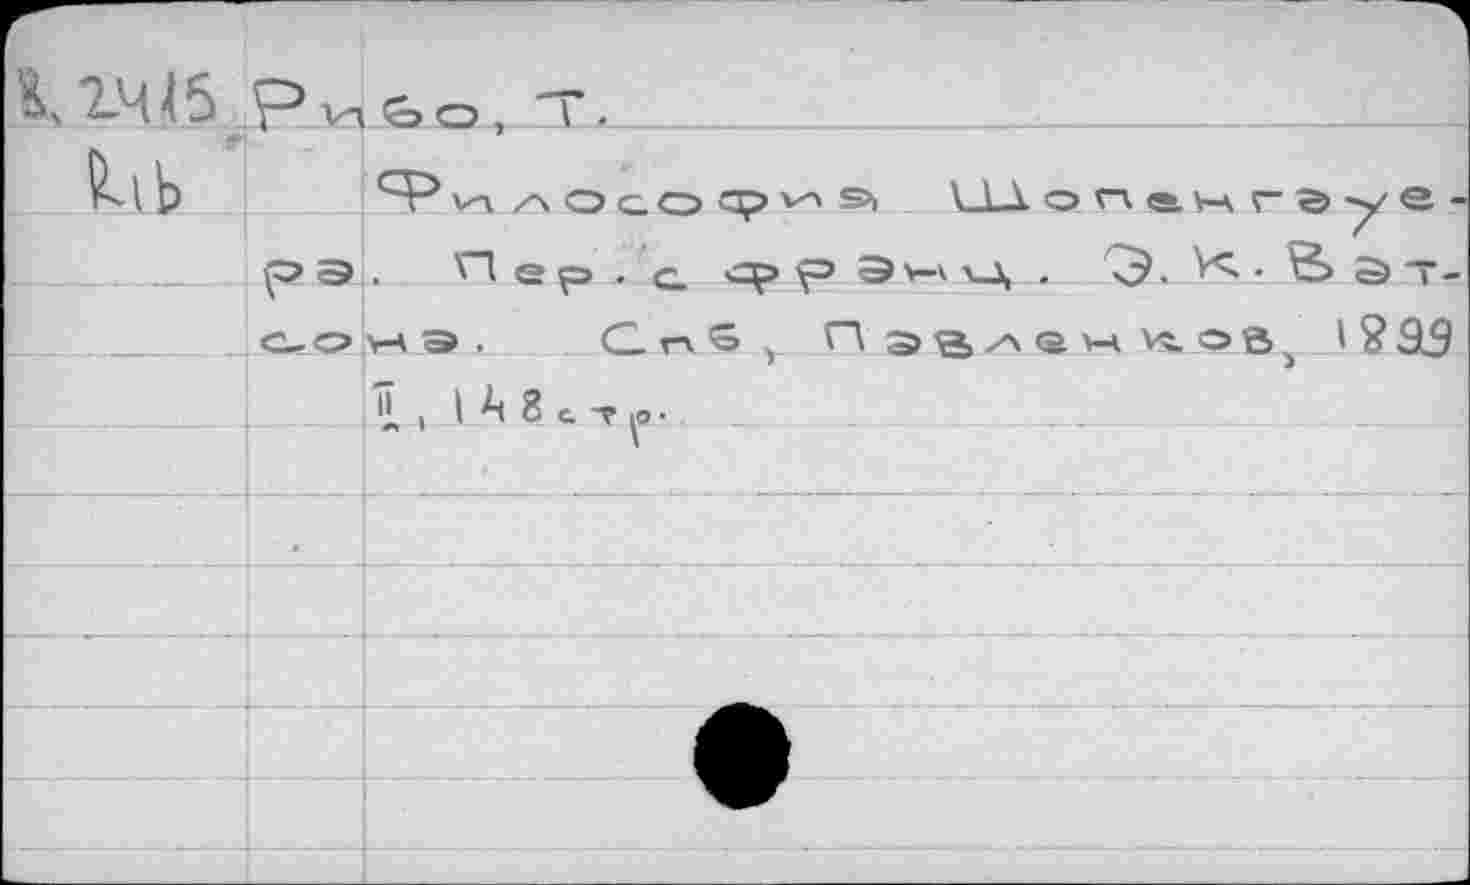 Рибо, Т.
Rib
Философия Шопенгауе-
ра. Пер. с франц. Э. К. Ват-
сона. Спб, Павленков, 1899
II, 148 стр.